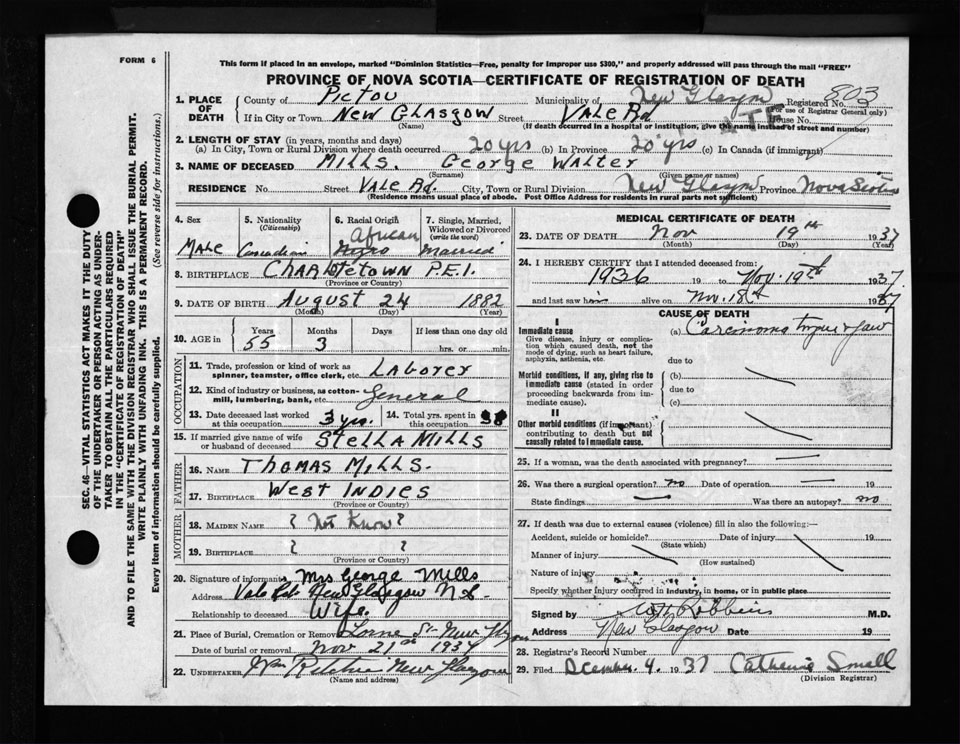 FORM 6
This form if placed in an envelope, marked "Dominion Statistics—Free, penalty for improper use $300," and properly addressed will pass through the mail "FREE"
PROVINCE OF NOVA SCOTIA—CERTIFICATE OF REGISTRATION OF DEATH
1. PLACE OF DEATH
County of Pictou Municipality of New Glasgow Registered No. 803
(For use of Registrar General only)
If in City or Town New Glasgow Street Vale Rd House No.
(Name) (If death occurred in a hospital or institution, give the name instead of street and number)
2. LENGTH OF STAY (in years, months and days)
(a) In City, Town or Rural Division where death occurred 20 yrs (b) In Province 20 yrs (c) In Canada (if immigrant)
3. NAME OF DECEASED Mills. George Walter
(Surname) (Given name or names)
RESIDENCE No. Street Vale Rd. City, Town or Rural Division New Glasgow Province Nova Scotia
(Residence means usual place of abode. Post Office Address for residents in rural parts not sufficient)
4. Sex
Male
5. Nationality
(Citizenship)
Canadian
6. Racial Origin
African
Negro
7. Single, Married, Widowed or Divorced
(write the word)
Married
8. BIRTHPLACE Charlotetown P.E.I.
(Province or Country)
9. DATE OF BIRTH August 24 1882
(Month) (Day) (Year)
10. AGE in
Years Months Days If less than one day old
55 3 hrs. or min.
OCCUPATION
11. Trade, profession or kind of work as spinner, teamster, office clerk, etc. Laborer
12. Kind of industry or business, as cotton-mill, lumbering, bank, etc. General
13. Date deceased last worked at this occupation 3 yrs.
14. Total yrs. spent in this occupation 38
15. If married give name of wife or husband of deceased Stella Mills
FATHER
16. NAME Thomas Mills.
17. BIRTHPLACE West Indies
(Province or Country)
MOTHER
18. MAIDEN NAME ? Not Know ?
19. BIRTHPLACE ? ?
(Province or Country)
20. Signature of informant Mrs George Mills
Address Vale Rd. New Glasgow N.S.
Relationship to deceased Wife.
21. Place of Burial, Cremation or Removal Lorne St. New Glasgow
Date of burial or removal Nov 21st 1937
22. UNDERTAKER New Glasgow
(Name and address)
MEDICAL CERTIFICATE OF DEATH
23. DATE OF DEATH Nov 19th 1937
(Month) (Day) (Year)
24. I HEREBY CERTIFY that I attended deceased from:
1936 19 to Nov. 19th 1937
and last saw him alive on Nov. 18th 1937
CAUSE OF DEATH
I
Immediate cause
Give disease, injury or complication which caused death, not the mode of dying, such as heart failure, asphyxia, asthenia, etc.
(a) Carcinoma tongue & jaw
due to
Morbid conditions, if any, giving rise to immediate cause (stated in order proceeding backwards from immediate cause).
(b)
due to
(c)
II
Other morbid conditions (if important) contributing to death but not causally related to immediate cause.
25. If a woman, was the death associated with pregnancy?
26. Was there a surgical operation? no Date of operation — 19
State findings — Was there an autopsy? no
27. If death was due to external causes (violence) fill in also the following:—
Accident, suicide or homicide? Date of injury 19
(State which)
Manner of injury
(How sustained)
Nature of injury
Specify whether injury occurred in industry, in home, or in public place
Signed by Robbins M.D.
Address New Glasgow Date 19
28. Registrar's Record Number
29. Filed December. 4. 1937 Catherine Small
(Division Registrar)
SEC. 46—VITAL STATISTICS ACT MAKES IT THE DUTY
OF THE UNDERTAKER OR PERSON ACTING AS UNDER-
TAKER TO OBTAIN ALL THE PARTICULARS REQUIRED
IN THE "CERTIFICATE OF REGISTRATION OF DEATH"
AND TO FILE THE SAME WITH THE DIVISION REGISTRAR WHO SHALL ISSUE THE BURIAL PERMIT.
WRITE PLAINLY WITH UNFADING INK. THIS IS A PERMANENT RECORD.
Every item of information should be carefully supplied. (See reverse side for instructions.)